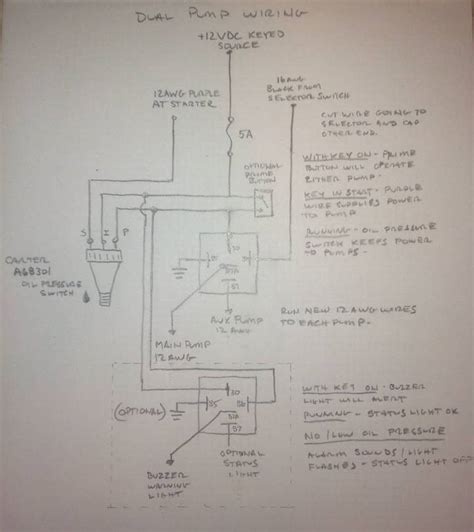 DUAL PUMP WIRING
+12VDC KEYED
SOURCE
12AWG PURPLE
AT STARTER
16AWG
BLACK FROM
SELECTOR SWITCH
CUT WIRE GOING TO
SELECTOR AND CAP
OTHER END.
5A
OPTIONAL
PRIME
BUTTON
WITH KEY ON - PRIME
BUTTON WILL OPERATE
EITHER PUMP.
KEY IN START - PURPLE
WIRE SUPPLIES POWER
TO PUMP
RUNNING - OIL PRESSURE
SWITCH KEEPS POWER
TO PUMPS.
S I P
CARTER
A68301
OIL PRESSURE
SWITCH
30
85
87A
86
87
AUX PUMP
12 AWG
MAIN PUMP
12AWG
RUN NEW 12AWG WIRES
TO EACH PUMP.
(OPTIONAL)
30
85
86
87A
87
OPTIONAL
STATUS
LIGHT
BUZZER
WARNING
LIGHT
WITH KEY ON - BUZZER
LIGHT WILL ALERT
RUNNING - STATUS LIGHT OK
NO/LOW OIL PRESSURE
ALARM SOUNDS/LIGHT
FLASHES - STATUS LIGHT OFF